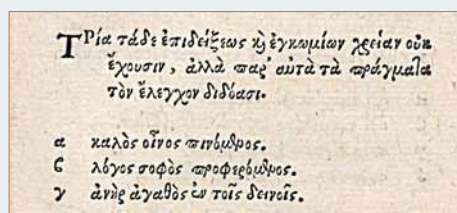 ΤΡία τάδε ἐπιδείξεως κ̀ ἐγκωμίων χρείαν οὐκ
ἔχουσιν, ἀλλὰ παρ' αὐτὰ τὰ πράγματα
τὸν ἔλεγχον διδόασι.
α καλὸς οἶνος πινόμενος.
ϛ λόγος σοφὸς προφερόμενος.
γ ἀνὴρ ἀγαθὸς ἐν τοῖς δεινοῖς.